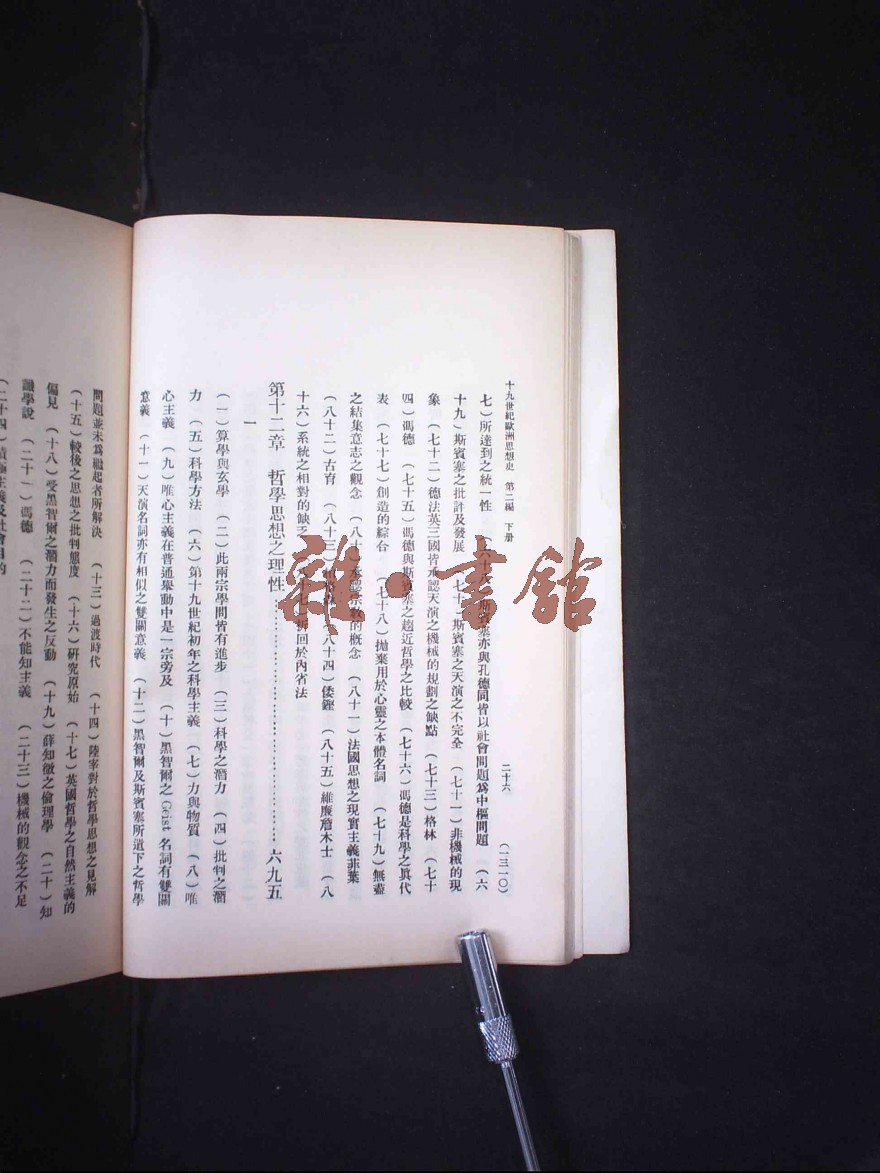 十九世紀歐洲思想史 第二編 下册 二十六 (一三一〇)
七)所達到之統一性 (六十八)斯賓塞亦與孔德同皆以社會問題爲中樞問題 (六
十九)斯賓塞之批評及發展 (七十)斯賓塞之天演之不完全 (七十一)非機械的現
象 (七十二)德法英三國皆承認天演之機械的規劃之缺點 (七十三)格林 (七十
四)馮德 (七十五)馮德與斯賓塞之趨近哲學之比較 (七十六)馮德是科學之眞代
表 (七十七)創造的綜合 (七十八)拋棄用於心靈之本體名詞 (七十九)無盡
之結集意志之觀念 (八十)承認宗教的概念 (八十一)法國思想之現實主義菲葉
(八十二)古育 (八十三) (八十四)倭鏗 (八十五)維廉詹木士 (八
十六)系統之相對的缺 十七)折回於內省法
第十二章 哲學思想之理性……………………六九五
一
(一)算學與玄學 (二)此兩宗學問皆有進步 (三)科學之潛力 (四)批判之潛
力 (五)科學方法 (六)第十九世紀初年之科學主義 (七)力與物質 (八)唯
心主義 (九)唯心主義在普通舉動中是一宗旁及 (十)黑智爾之Geist名詞有雙關
意義 (十一)天演名詞亦有相似之雙關意義 (十二)黑智爾及斯賓塞所遺下之哲學
問題並未爲繼起者所解決 (十三)過渡時代 (十四)陸宰對於哲學思想之見解
(十五)較後之思想之批判態度 (十六)研究原始 (十七)英國哲學之自然主義的
偏見 (十八)受黑智爾之潛力而發生之反動 (十九)薛知微之倫理學 (二十)知
識學說 (二十一)馮德 (二十二)不能知主義 (二十三)機械的觀念之不足
(二十四)積極主義及社會目的
雜·書館